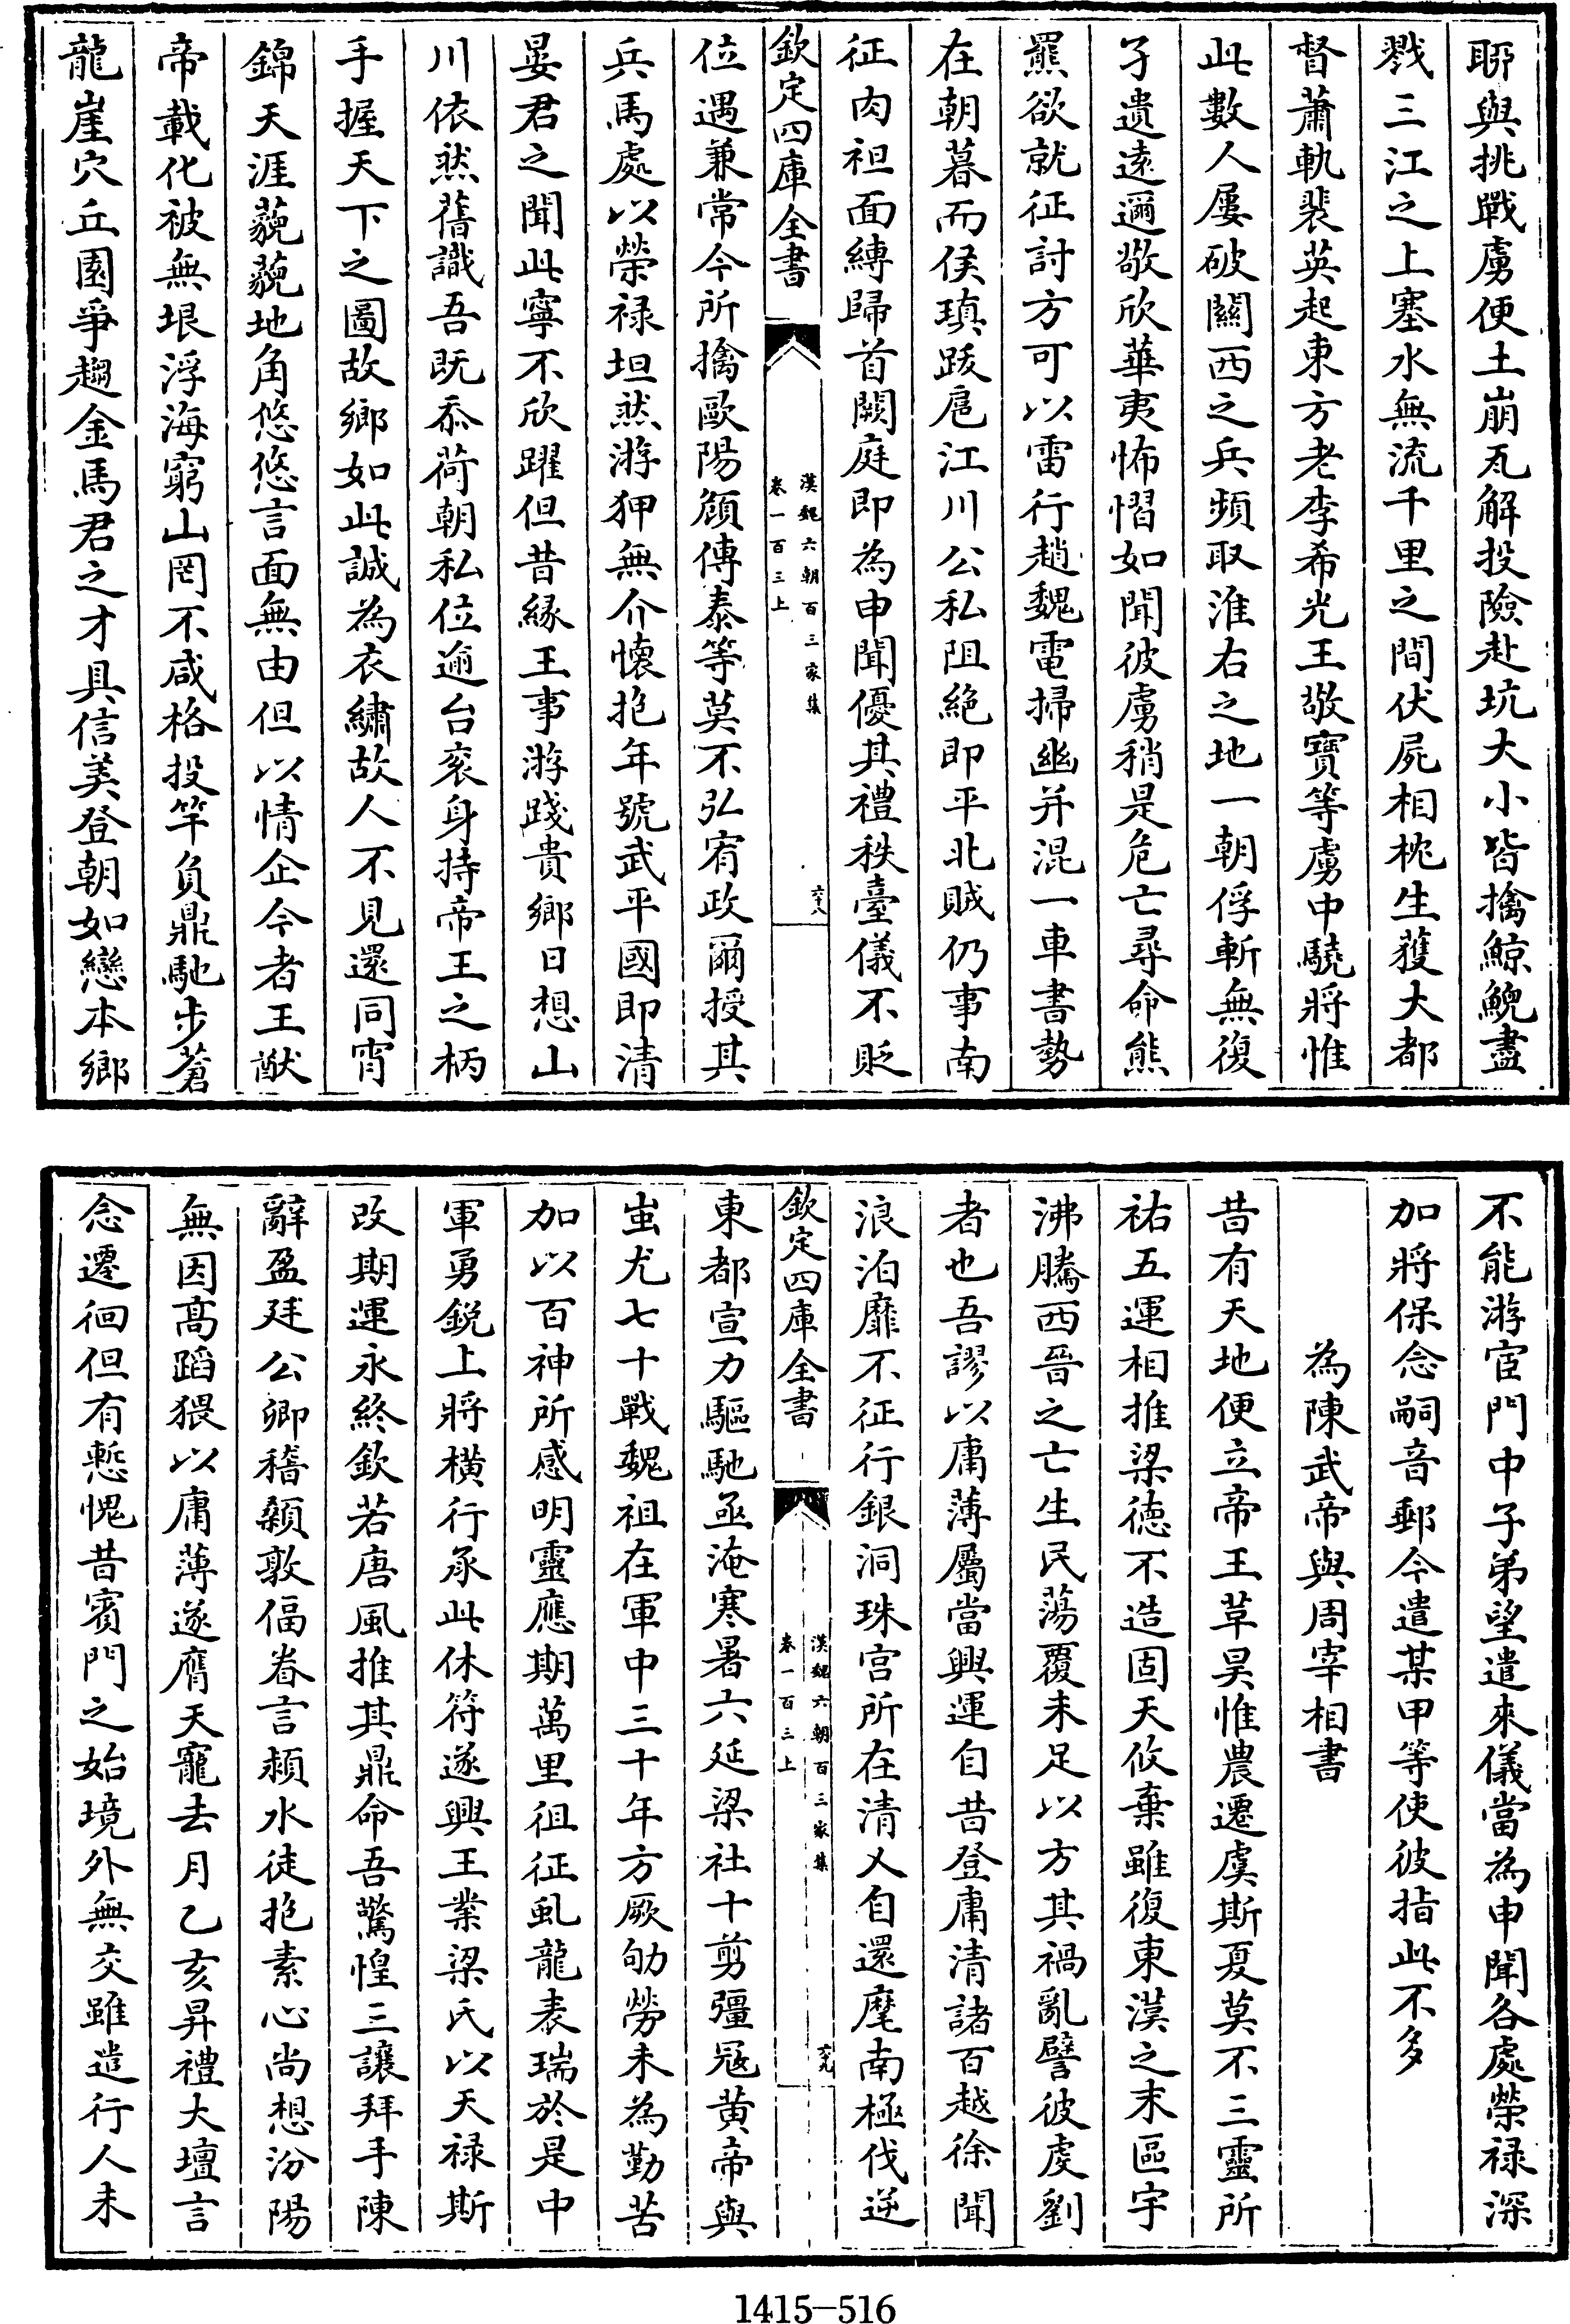 聊與挑戰虜便土崩瓦解投險赴坑大小皆擒鯨鯢盡
戮三江之上塞水無流千里之間伏屍相枕生獲大都
督蕭軌裴英起東方老李希光王敬寶等虜中驍將惟
此數人屢破關西之兵頻取淮右之地一朝俘斬無復
孑遺遠邇敬欣華夷怖慴如聞彼虜稍是危亡尋命熊
羆欲就征討方可以雷行趙魏電掃幽并混一車書勢
在朝暮而侯瑱跋扈江川公私阻絶即平北賊仍事南
征肉袒面縛歸首闕庭即為申聞優其禮秩臺儀不貶
欽定四庫全書
漢魏六朝百三家集
卷一百三上
六十八
位遇兼常今所擒歐陽頠傅泰等莫不弘宥政爾授其
兵馬處以榮禄坦然游狎無介懷抱年號武平國即清
晏君之聞此寧不欣躍但昔縁王事游踐貴鄉日想山
川依然舊識吾既忝荷朝私位逾台衮身持帝王之柄
手握天下之圖故鄉如此誠為衣繡故人不見還同宵
錦天涯藐藐地角悠悠言面無由但以情企今者王猷
帝載化被無垠浮海窮山罔不咸格投竿負鼎馳步蒼
龍崖穴丘園爭趨金馬君之才具信美登朝如戀本鄉
不能游宦門中子弟望遣來儀當為申聞各處榮禄深
加將保念嗣音郵今遣某甲等使彼指此不多
為陳武帝與周宰相書
昔有天地便立帝王草昊惟農遷虞斯夏莫不三靈所
祐五運相推梁德不造固天攸棄雖復東漢之末區宇
沸騰西晉之亡生民蕩覆未足以方其禍亂譬彼虔劉
者也吾謬以庸薄屬當興運自昔登庸清諸百越徐聞
浪泊靡不征行銀洞珠宫所在清乂自還麾南極伐逆
欽定四庫全書
漢魏六朝百三家集
卷一百三上
六十九
東都宣力驅馳亟淹寒暑六延梁社十剪彊寇黄帝與
蚩尤七十戰魏祖在軍中三十年方厥劬勞未為勤苦
加以百神所感明靈應期萬里徂征虬龍表瑞於是中
軍勇鋭上將橫行承此休符遂興王業梁氏以天禄斯
改期運永終欽若唐風推其鼎命吾驚惶三讓拜手陳
辭盈廷公卿稽顙敦偪眷言潁水徒抱素心尚想汾陽
無因髙蹈猥以庸薄遂膺天寵去月乙亥昇禮大壇言
念遷徊但有慙愧昔賓門之始境外無交雖遣行人未
1415-516